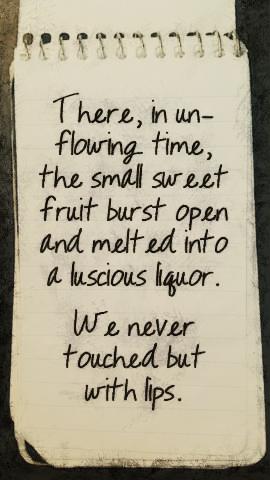 There, in un-
flowing time,
the small sweet
fruit burst open
and melted into
a luscious liquor.
We never
touched but
with lips.